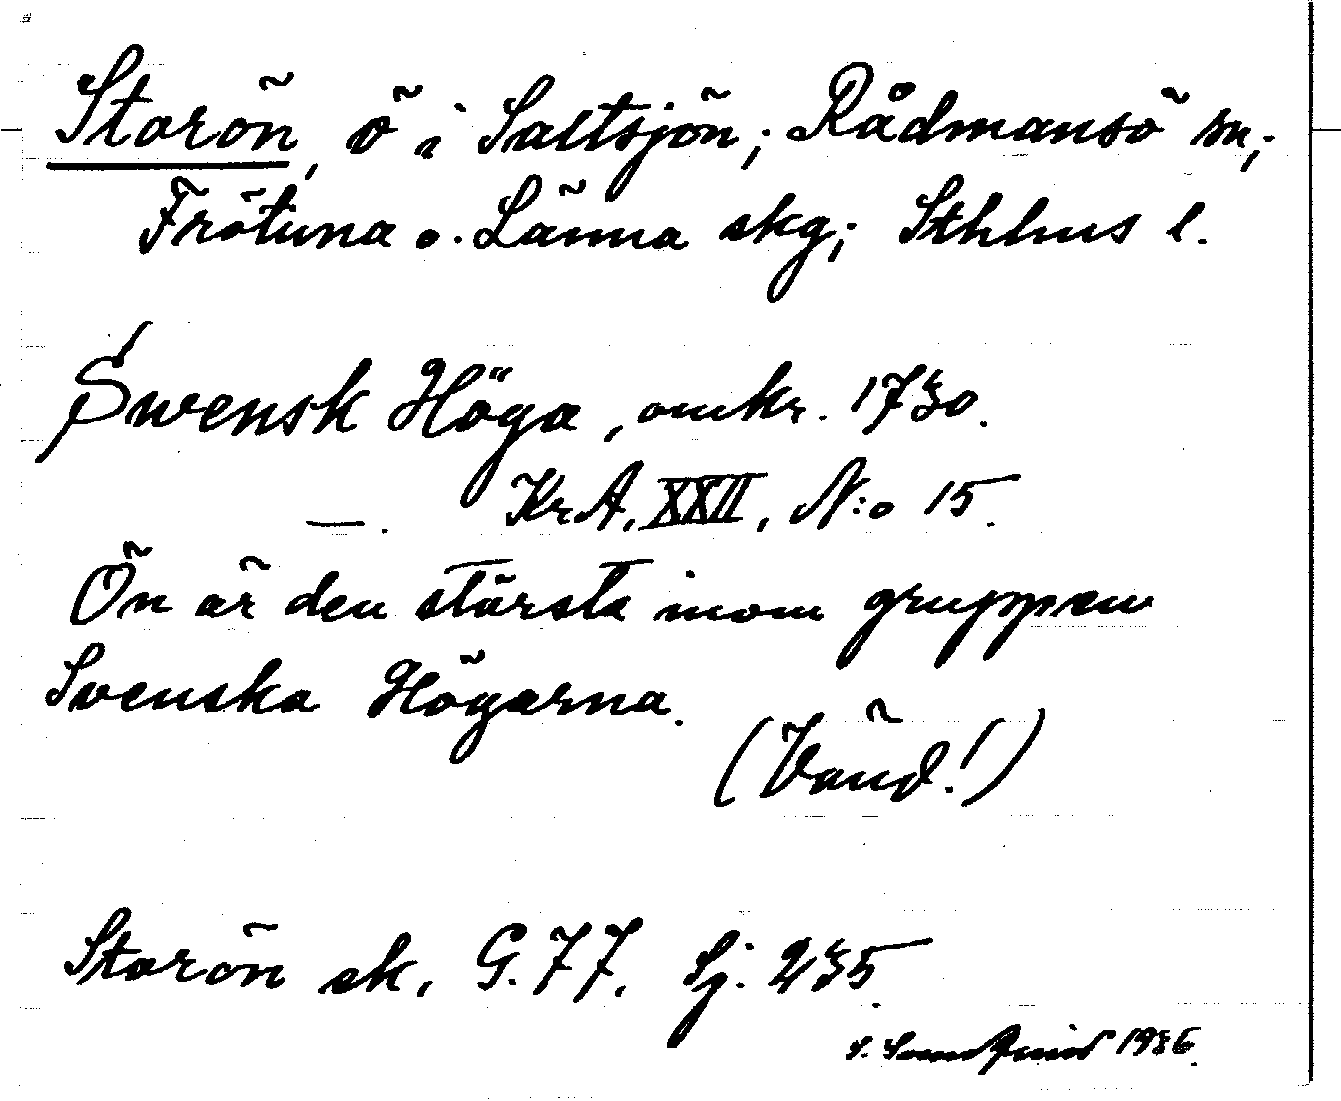 Storön, ö i Saltsjön; Rådmansö sn;
Frötuna o. Länna skg; Sthlms l.
Swensk Höga, omkr. 1730.
KrA, XXII, N:o 15.
—.
Ön är den största inom gruppen
Svenska Högarna.
(Vänd!)
Storön sk. G. 77. Sj. 235.
S. 1936.